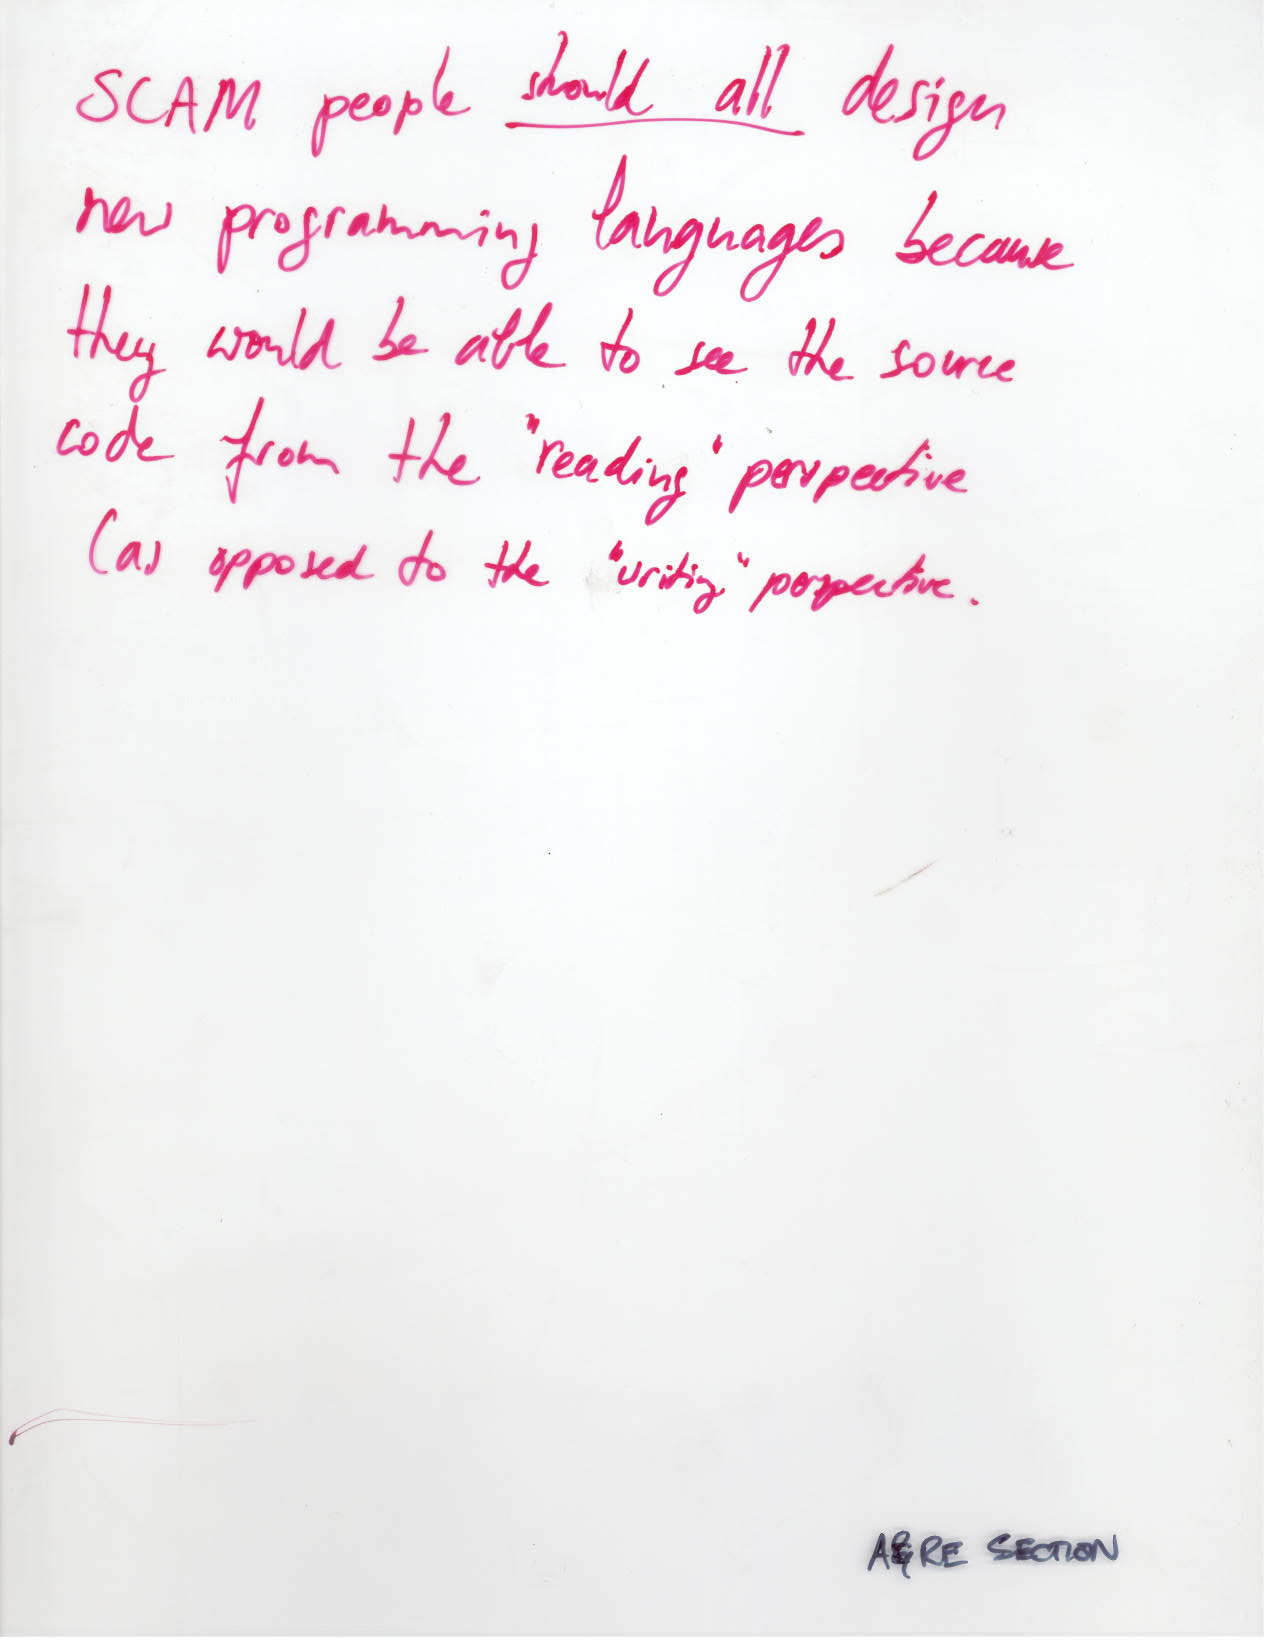 SCAM people should all design
new programming languages because
they would be able to see the source
code from the "reading" perspective
(as opposed to the "writing" perspective.
SECTION